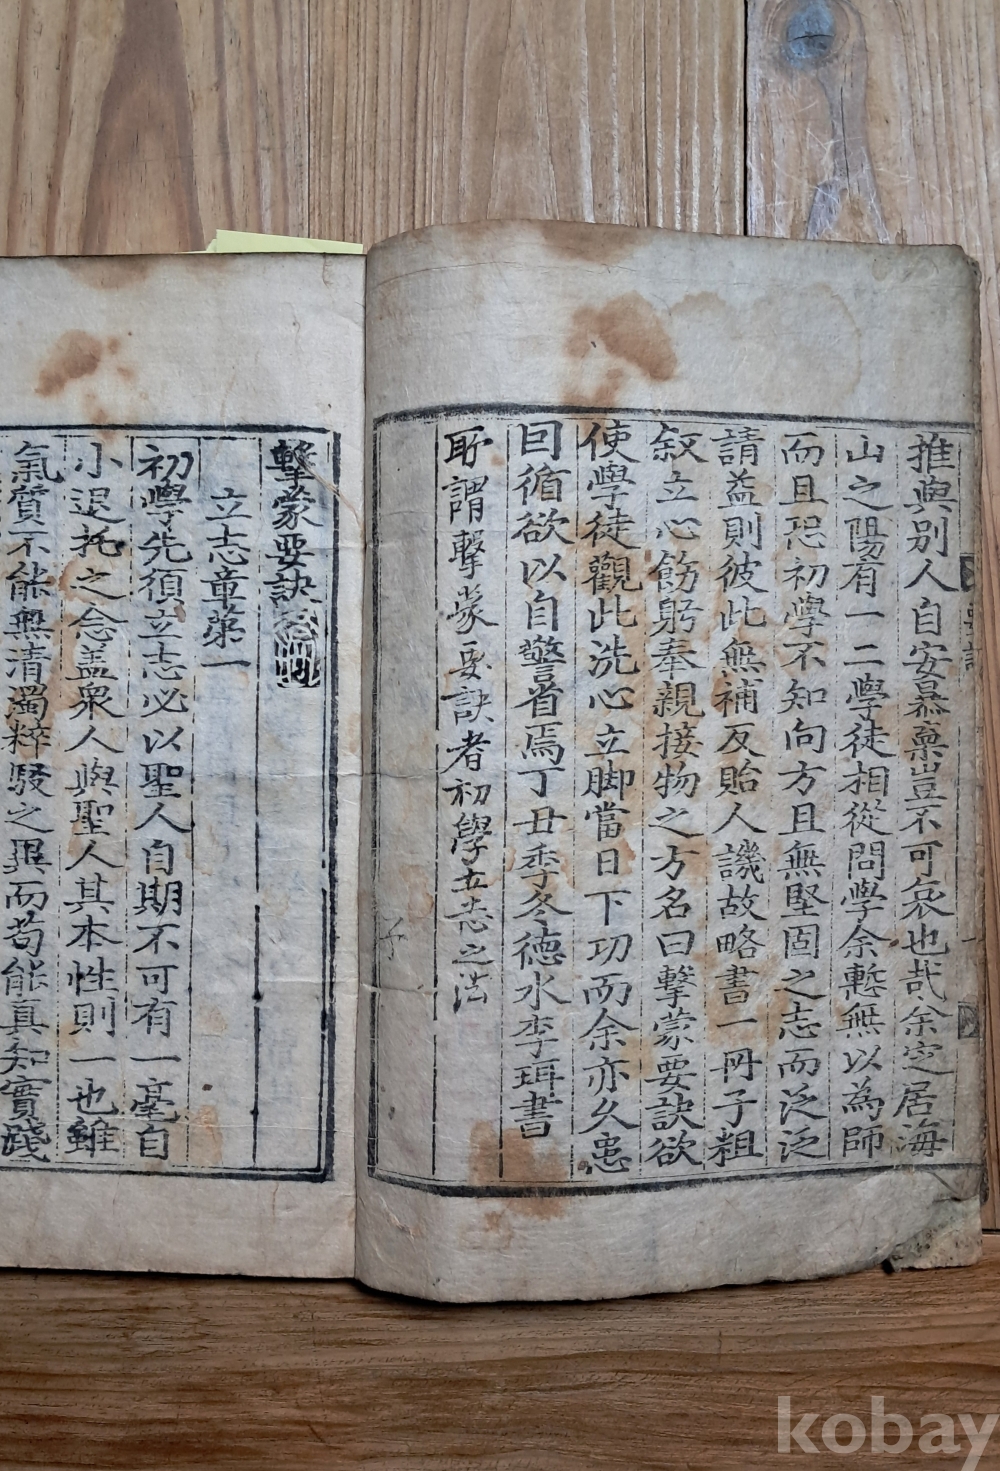 推與別人自安慕稟豈不可哀也哉余定居海
山之陽有一二學徒相從問學余慙無以為師
而且恐初學不知向方且無堅固之志而泛泛
請益則彼此無補反貽人譏故略書一冊子粗
叙立心飭躬奉親接物之方名曰擊蒙要訣欲
使學徒觀此洗心立脚當日下功而余亦久患
因循欲以自警省焉丁丑季冬德水李珥書
所謂擊蒙要訣者初學立志之法
擊蒙要訣
立志章第一
初學先須立志必以聖人自期不可有一毫自
小退托之念盖衆人與聖人其本性則一也雖
氣質不能無清濁粹駁之異而苟能真知實踐
要訣
一
子
kobay